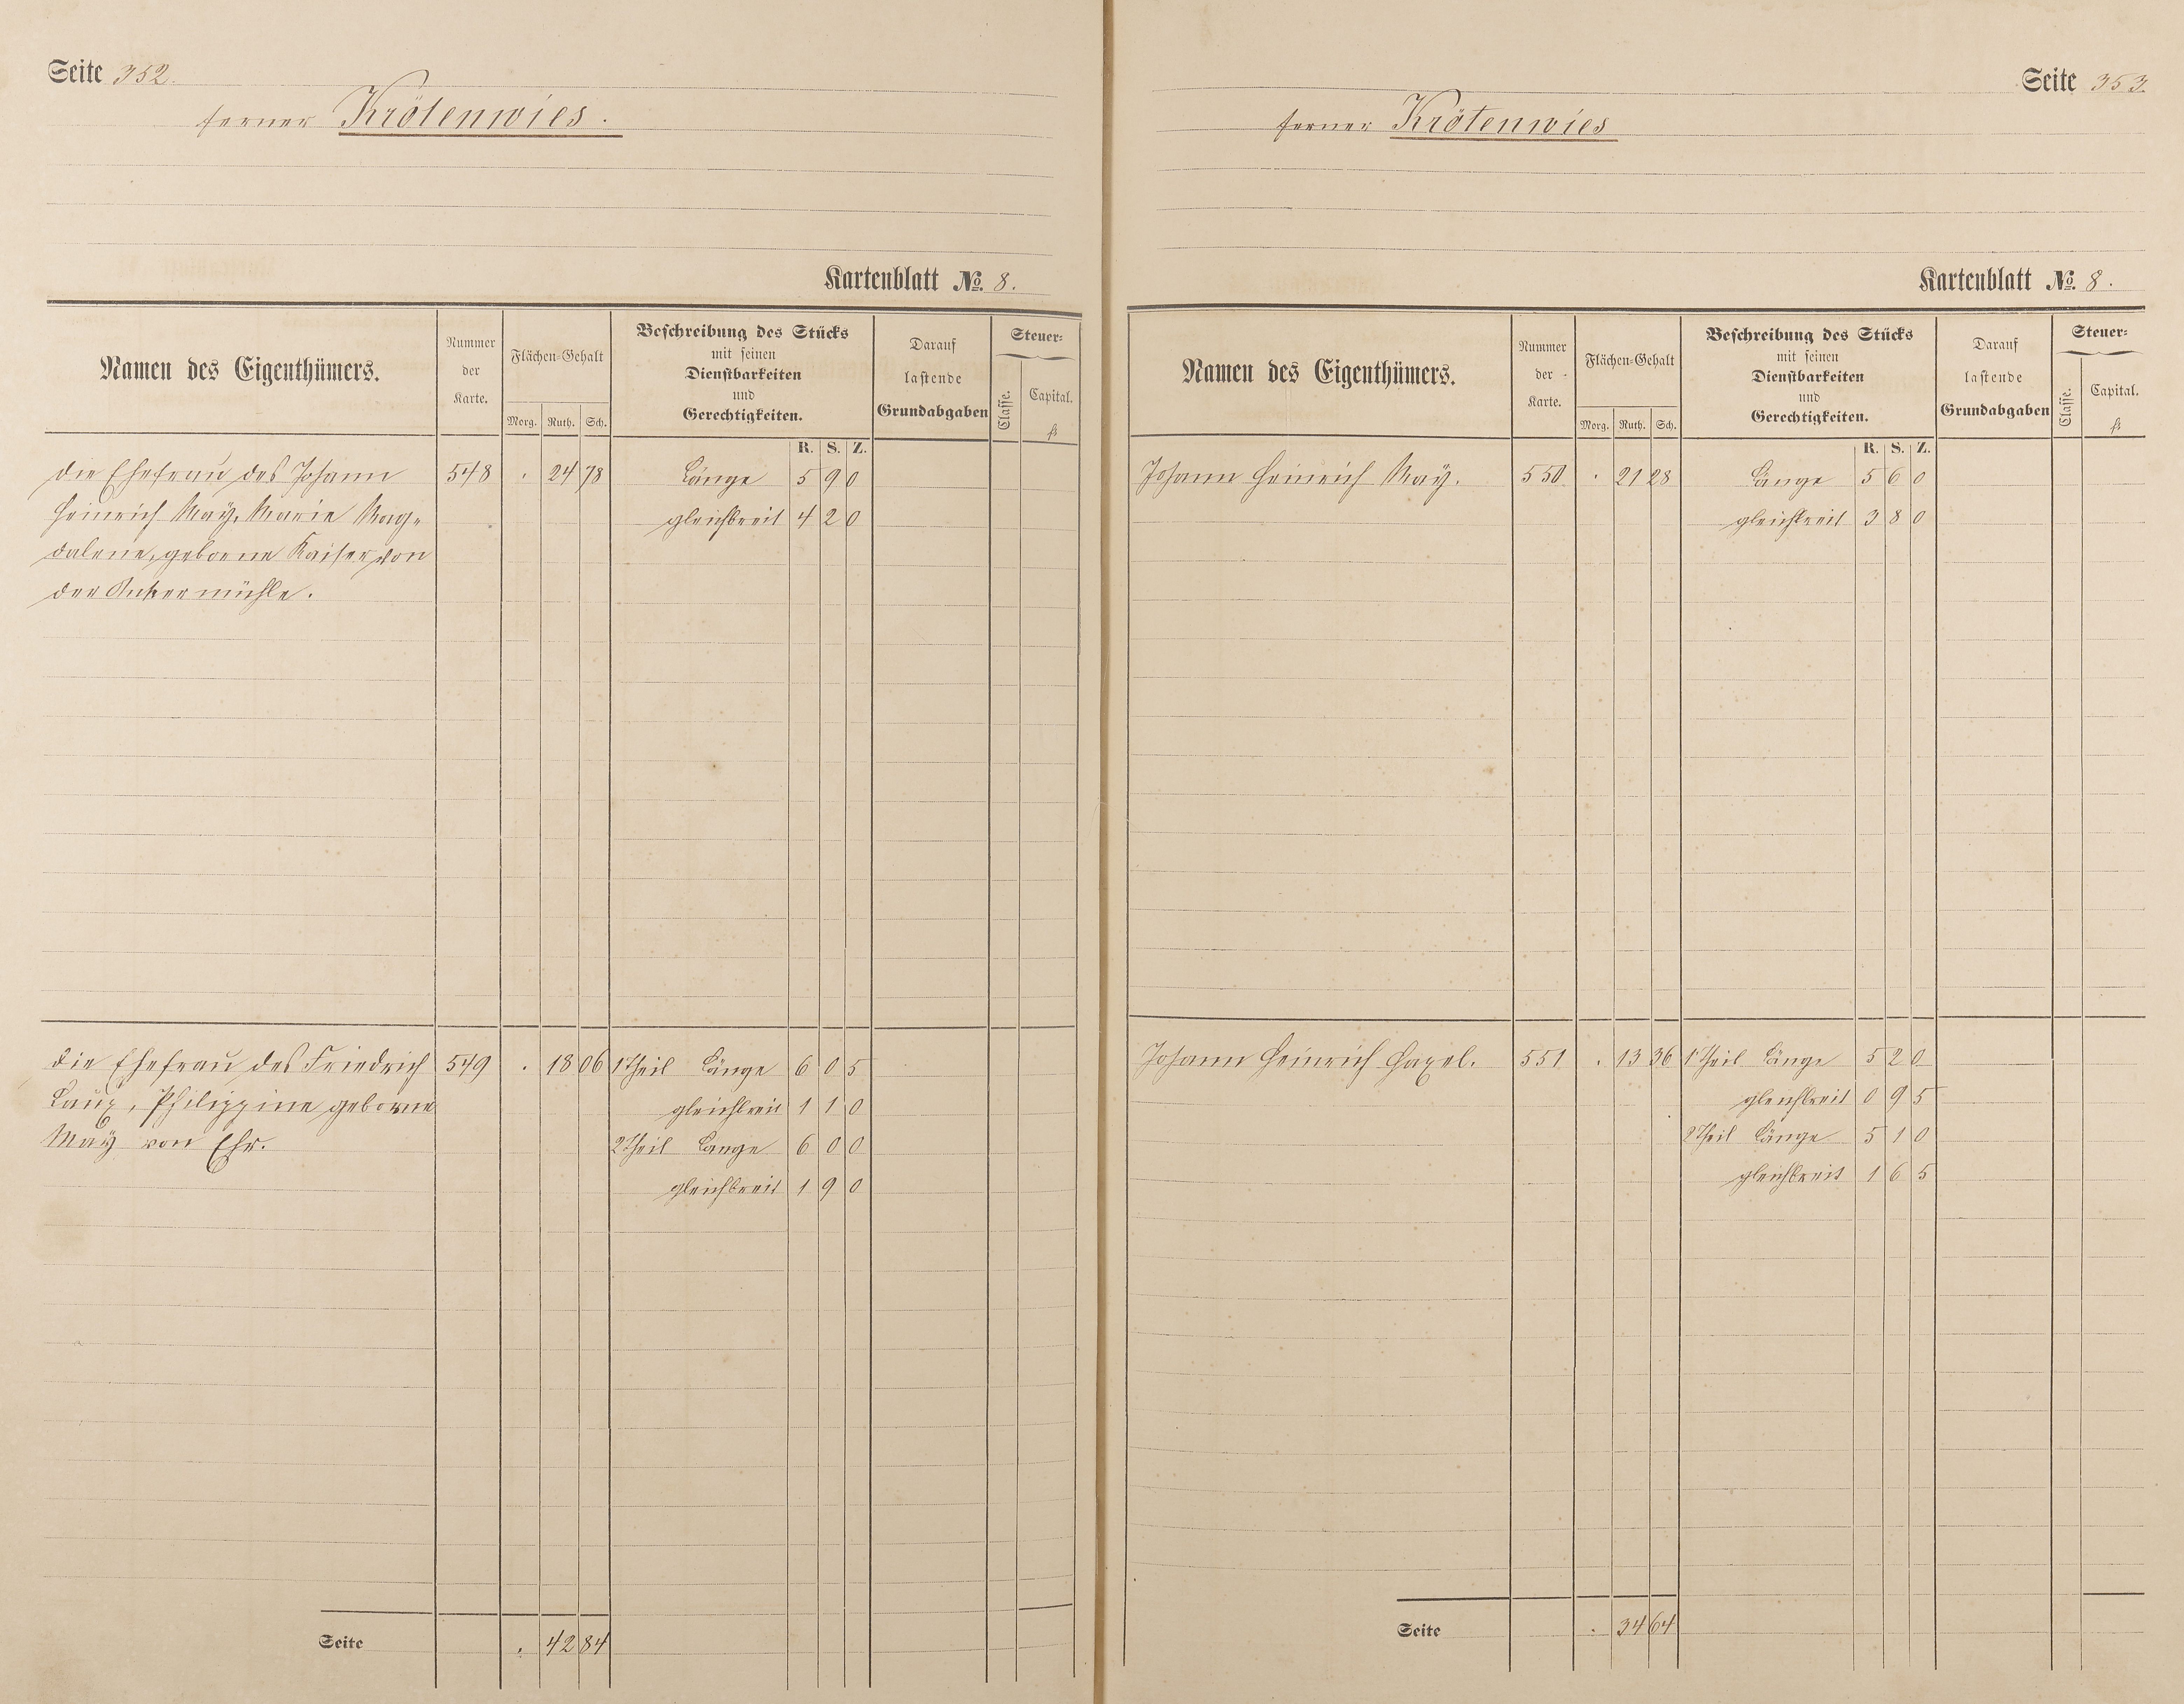 Seite 352.
ferner Krötenwies.
Kartenblatt No. 8.
Namen des Eigenthümers.
Nummer der Karte.
Flächen-Gehalt
Morg. Ruth. Sch.
Beschreibung des Stücks
mit seinen
Dienstbarkeiten
und
Gerechtigkeiten.
Darauf
lastende
Grundabgaben
Steuer-
Classe.
Capital.
fl
R. S. Z.
die Ehefrau des Johann 548 . 24 78 Länge 5 9 0
Heinrich Maÿ, Marie Mag- gleichbreit 4 2 0
dalene, geborne Kaiser von
der Ankermühle.
die Ehefrau des Friedrich 549 . 18 06 1 Theil Länge 6 0 5
Laux, Philippine geborne gleichbreit 1 1 0
Maÿ von Ehr. 2 Theil Länge 6 0 0
gleichbreit 1 9 0
Seite . 42 84
Seite 353.
ferner Krötenwies
Kartenblatt No. 8.
Namen des Eigenthümers.
Nummer der Karte.
Flächen-Gehalt
Morg. Ruth. Sch.
Beschreibung des Stücks
mit seinen
Dienstbarkeiten
und
Gerechtigkeiten.
Darauf
lastende
Grundabgaben
Steuer-
Classe.
Capital.
fl
R. S. Z.
Johann Heinrich Maÿ. 550 . 21 28 Länge 5 6 0
gleichbreit 3 8 0
Johann Heinrich 551 . 13 36 1 Theil Länge 5 2 0
gleichbreit 0 9 5
2 Theil Länge 5 1 0
gleichbreit 1 6 5
Seite . 34 64